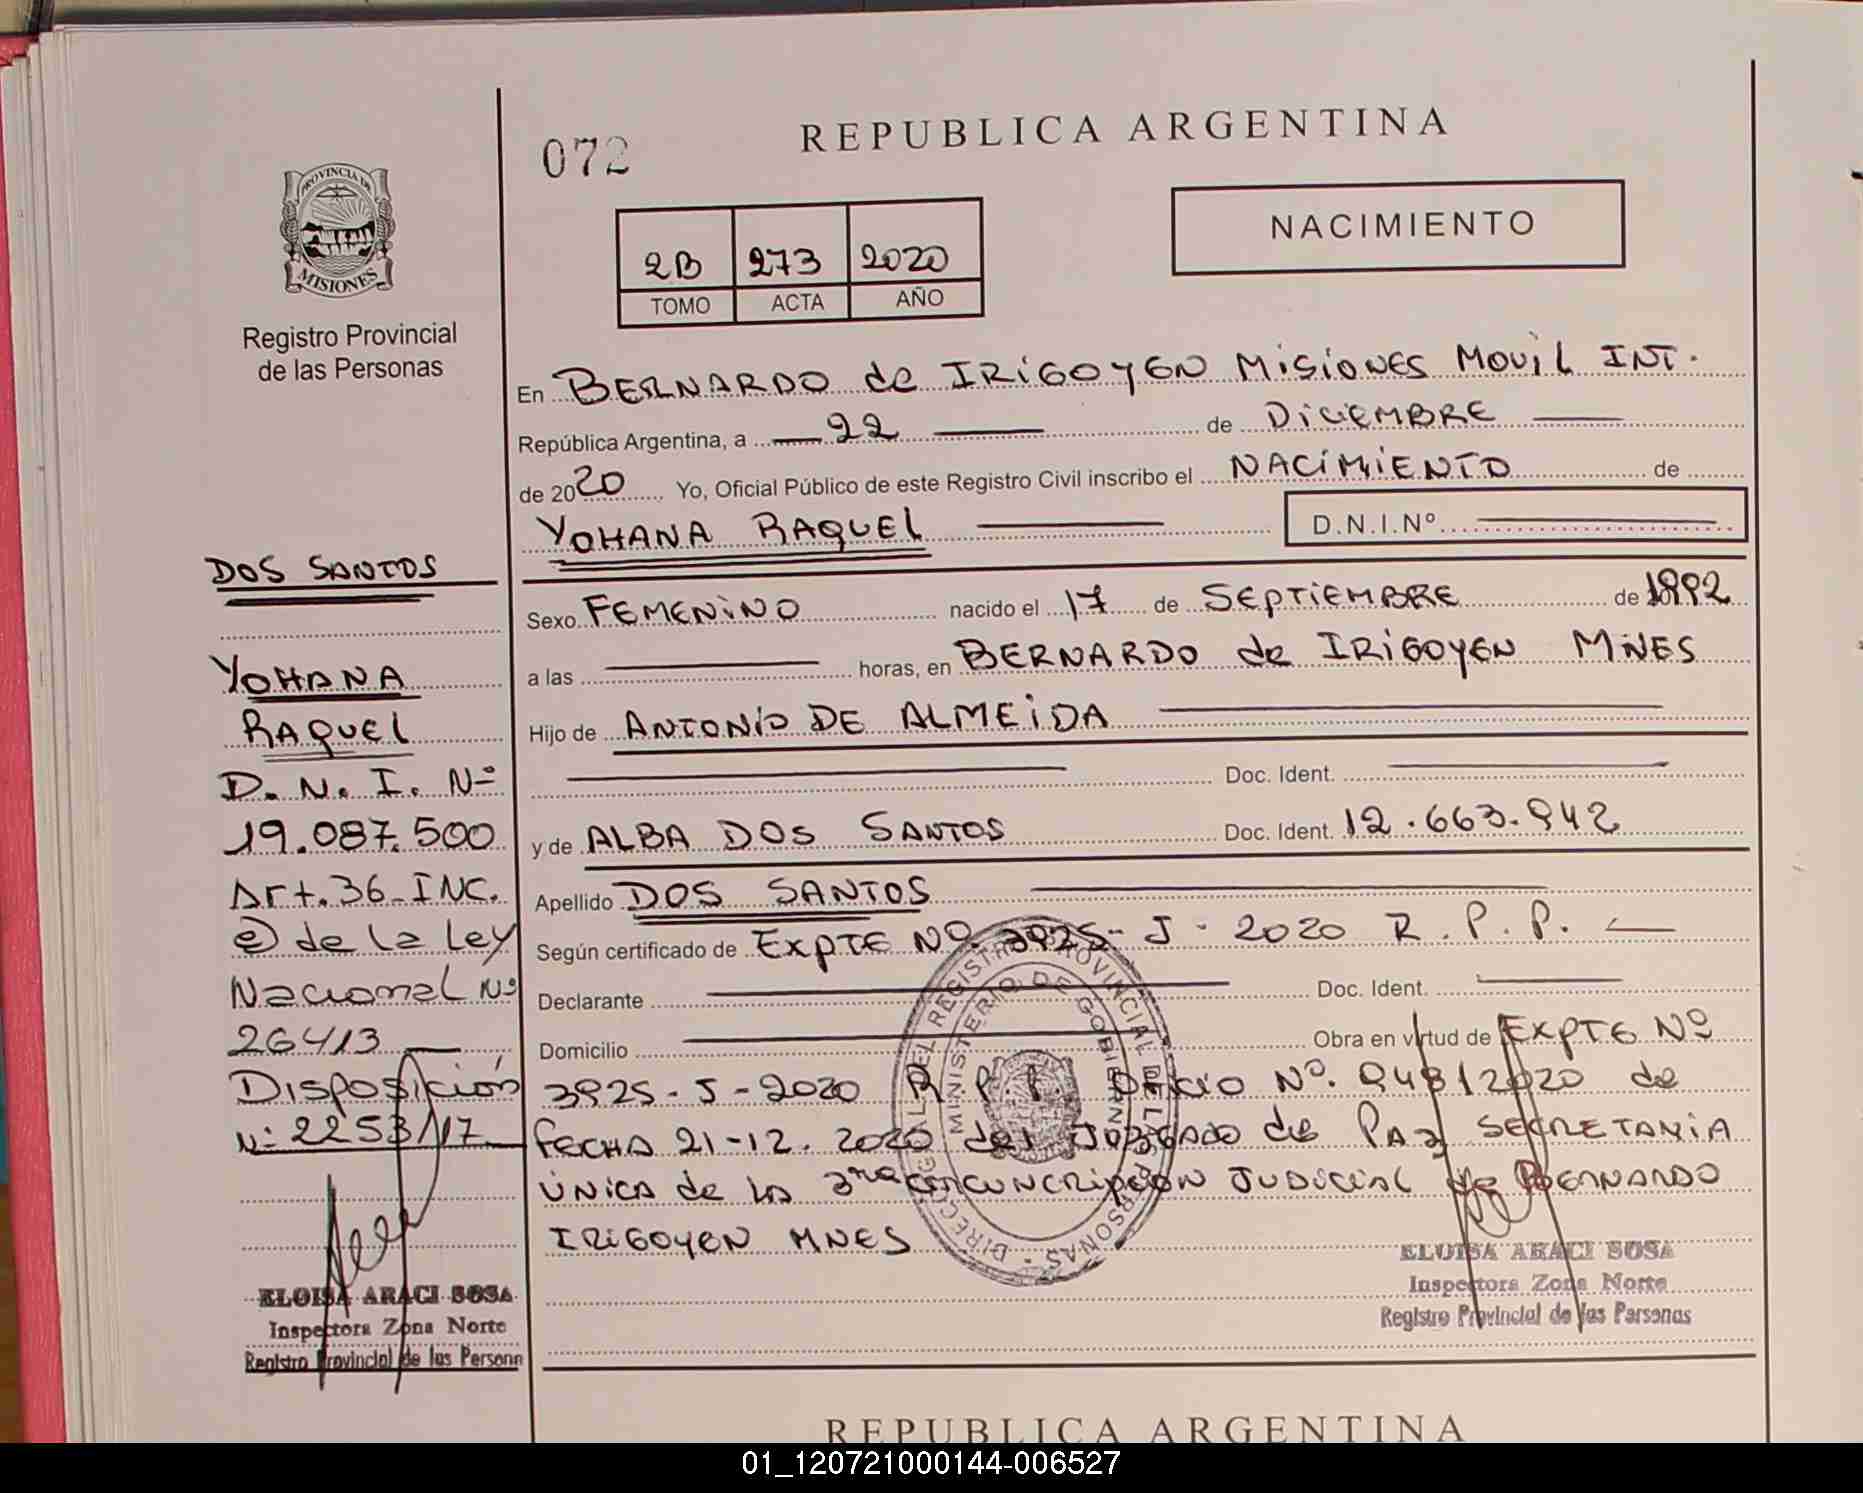 072
REPUBLICA ARGENTINA
NACIMIENTO
2B 273 2020
TOMO ACTA AÑO
PROVINCIA DE
MISIONES
Registro Provincial
de las Personas
DOS SANTOS
YOHANA
RAQUEL
D.N.I. Nº
19.087.500
Art. 36 - INC.
e) de la Ley
Nacional Nº
26413
Disposición
Nº 2253/17
ELOISA ARACI SOSA
Inspectora Zona Norte
Registro Provincial de las Persona
En BERNARDO de IRIGOYEN MISIONES MOVIL INT.
República Argentina, a 22 de DICIEMBRE
de 2020 Yo, Oficial Público de este Registro Civil inscribo el NACIMIENTO de
YOHANA RAQUEL D.N.I.Nº
Sexo FEMENINO nacido el 17 de SEPTIEMBRE de 1992
a las horas, en BERNARDO de IRIGOYEN MNES
Hijo de ANTONIO DE ALMEIDA
Doc. Ident.
y de ALBA DOS SANTOS Doc. Ident. 12.663.942
Apellido DOS SANTOS
Según certificado de EXPTE Nº. 3925-J-2020 R.P.P.
Declarante Doc. Ident.
Domicilio Obra en virtud de EXPTE Nº
3925-J-2020 R.P.P. OFICIO Nº. 948/2020 de
FECHA 21-12.2020 del JUZGADO de PAZ SECRETARIA
ÚNICA de la 3ra CIRCUNCRIPCION JUDICIAL de BERNARDO
IRIGOYEN MNES
DIRECC. GRAL. DEL REGISTRO PROVINCIAL DE LAS PERSONAS
MINISTERIO DE GOBIERNO
ELOISA ARACI SOSA
Inspectora Zona Norte
Registro Provincial de las Personas
REPUBLICA ARGENTINA
01_120721000144-006527